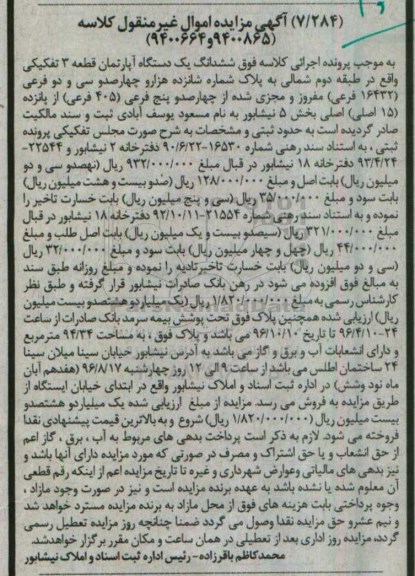 (۷/۲۸۴) آگهی مزایده اموال غیرمنقول کلاسه
(۹۴۰۰۸۶۵و۹۴۰۰۶۶۴)
به موجب پرونده اجرائی کلاسه فوق ششدانگ یک دستگاه آپارتمان قطعه ۳ تفکیکی
واقع در طبقه دوم شمالی به پلاک شماره شانزده هزارو چهارصدو سی و دو فرعی
(۱۶۴۳۲ فرعی) مفروز و مجزی شده از چهارصدو پنج فرعی (۴۰۵ فرعی) از پانزده
(۱۵ اصلی) اصلی بخش ۵ نیشابور به نام مسعود یوسف آبادی ثبت و سند مالکیت
صادر گردیده است به حدود ثبتی و مشخصات به شرح صورت مجلس تفکیکی پرونده
ثبتی ، به استناد سند رهنی شماره ۱۶۵۳۰-۹۰/۶/۲۲ دفترخانه ۲ نیشابور و ۲۲۵۴۴-
۹۳/۴/۲۴ دفترخانه ۱۸ نیشابور در قبال مبلغ ۹۳۲/۰۰۰/۰۰۰ ریال (نهصدو سی و دو
میلیون ریال) بابت اصل و مبلغ ۱۲۸/۰۰۰/۰۰۰ ریال (صدو بیست و هشت میلیون ریال)
بابت سود و مبلغ ۳۵/۰۰۰/۰۰۰ ریال (سی و پنج میلیون ریال) بابت خسارت تاخیر را
نموده و به استناد سند رهنی شماره ۲۱۵۵۴-۹۲/۱۰/۱۱ دفترخانه ۱۸ نیشابور در قبال
مبلغ ۳۲۱/۰۰۰/۰۰۰ ریال (سیصدو بیست و یک میلیون ریال) بابت اصل طلب و مبلغ
۴۴/۰۰۰/۰۰۰ ریال (چهل و چهار میلیون ریال) بابت سود و مبلغ ۳۲/۰۰۰/۰۰۰ ریال
(سی و دو میلیون ریال) بابت خسارت تاخیرتادیه را نموده و مبلغ روزانه طبق سند
به مبالغ فوق افزوده می شود در رهن بانک صادرات نیشابور قرار گرفته و طبق نظر
کارشناس رسمی به مبلغ ۱/۸۲۰/۰۰۰/۰۰۰ ریال (یک میلیاردو هشتصدو بیست میلیون
ریال) ارزیابی شده همچنین پلاک فوق تحت پوشش بیمه سرمد بانک صادرات از ساعت
۲۴-۹۶/۴/۱۰ تا تاریخ ۹۶/۱۰/۱۰ می باشد و پلاک فوق ، به مساحت ۹۴/۳۴ مترمربع
و دارای انشعابات آب و برق و گاز می باشد به آدرس نیشابور خیابان سینا میلان سینا
۲۴ ساختمان اطلس می باشد از ساعت ۹ الی ۱۲ روز چهارشنبه ۹۶/۸/۱۷ (هفدهم آبان
ماه نود وشش) در اداره ثبت اسناد و املاک نیشابور واقع در ابتدای خیابان ایستگاه از
طریق مزایده به فروش می رسد. مزایده از مبلغ ارزیابی شده یک میلیاردو هشتصدو
بیست میلیون ریال (۱/۸۲۰/۰۰۰/۰۰۰ ریال) شروع و به بالاترین قیمت پیشنهادی نقدا
فروخته می شود. لازم به ذکر است پرداخت بدهی های مربوط به آب ، برق ، گاز اعم
از حق انشعاب و یا حق اشتراک و مصرف در صورتی که مورد مزایده دارای آنها باشد و
نیز بدهی های مالیاتی وعوارض شهرداری و غیره تا تاریخ مزایده اعم از اینکه رقم قطعی
آن معلوم شده یا نشده باشد به عهده برنده مزایده است و نیز در صورت وجود مازاد ،
وجوه پرداختی بابت هزینه های فوق از محل مازاد به برنده مزایده مسترد خواهد شد
و نیم عشرو حق مزایده نقدا وصول می گردد ضمنا چنانچه روز مزایده تعطیل رسمی
گردد، مزایده روز اداری بعد از تعطیلی در همان ساعت و مکان مقرر برگزار خواهدشد.
محمدکاظم باقرزاده - رئیس اداره ثبت اسناد و املاک نیشابور